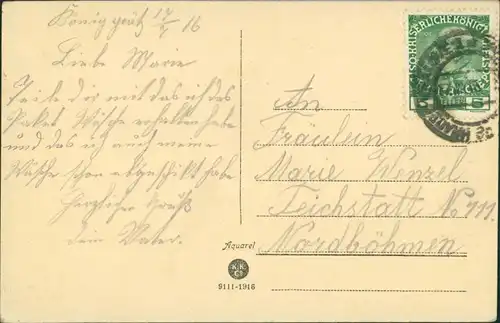 Königgrätz 17/7 16
Liebe Marie
Teile dir mit das ich das
Paket Wäsche erhalten habe
und das ich auch meine
Wäsche schon abgeschikt habe
Herzlicher Gruß
dein Vater.
An
Fräulein
Marie Wenzel
Teichstatt No 111.
Nordböhmen
KAISERLICHE KÖNIGL
5 5
Aquarel
K.K.
9111-1916